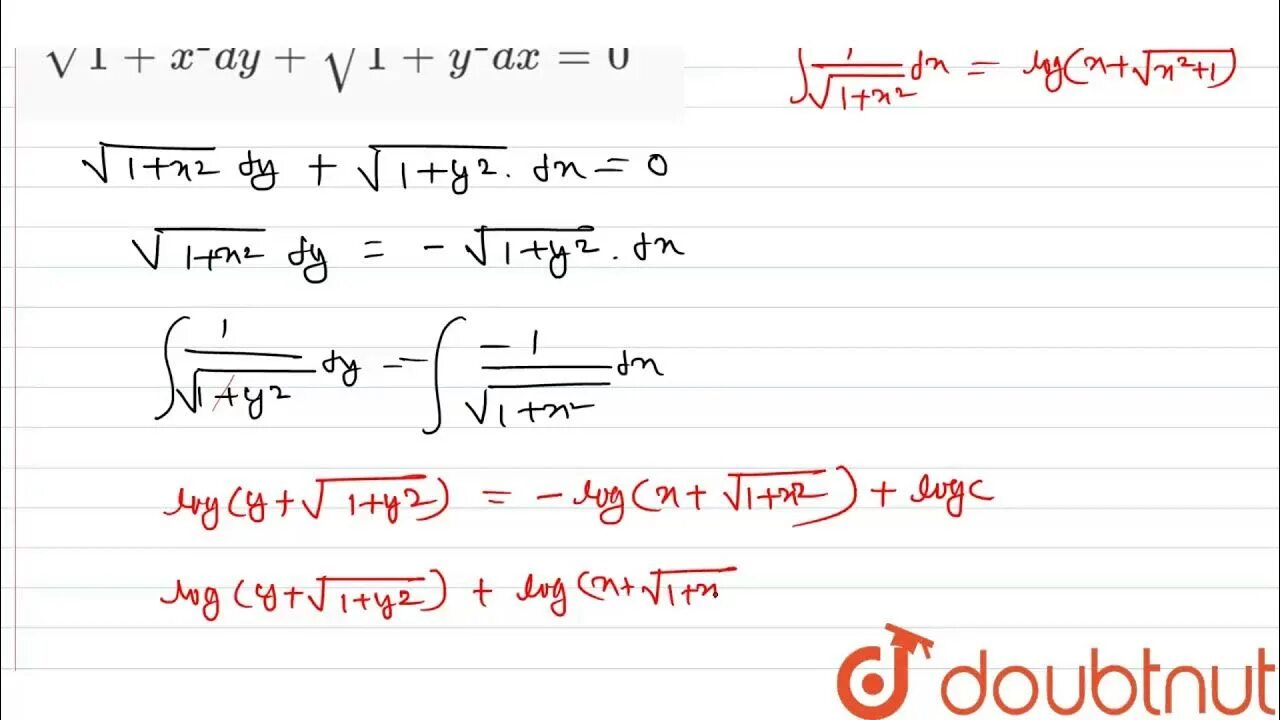 √1 + x²dy + √1 + y²dx = 0
∫ 1/√(1+x²) dx = log(x+√(x²+1))
√(1+x²) dy + √(1+y²). dx = 0
√(1+x²) dy = - √(1+y²). dx
∫ 1/√(1+y²) dy = - ∫ -1/√(1+x²) dx
log(y+√(1+y²)) = -log(x+√(1+x²)) + log c
log(y+√(1+y²)) + log(x+√(1+x
doubtnut